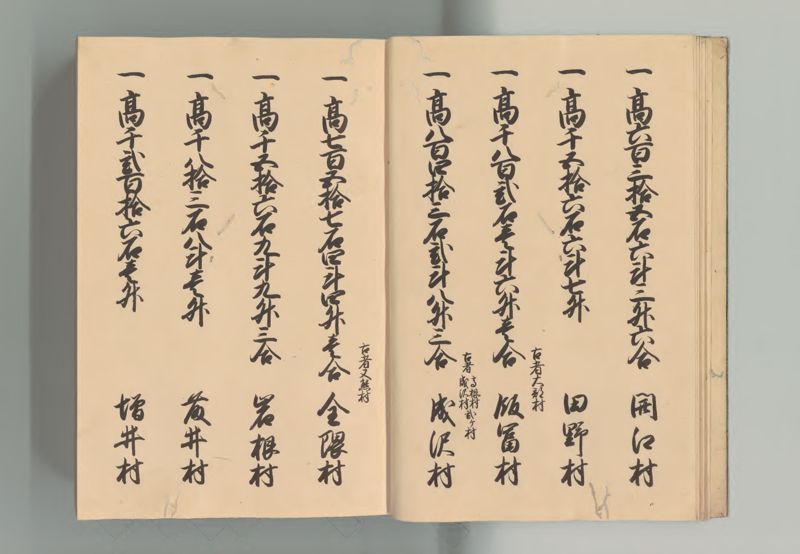 一 高六百三拾五石六斗二升六合 岡江村
一 高千五拾六石六斗七升 田野村
古者大部村
一 高千八百弐石壱斗六升壱合 飯冨村
古者
成沢村弐ヶ村
一 高八百四拾三石弐斗八升三合 成沢村
古者又熊村
一 高七百五拾七石四斗四升壱合 全隈村
一 高千五拾六石九斗九升三合 岩根村
一 高千八拾三石八斗壱升 藤井村
一 高千弐百拾六石壱升 増井村